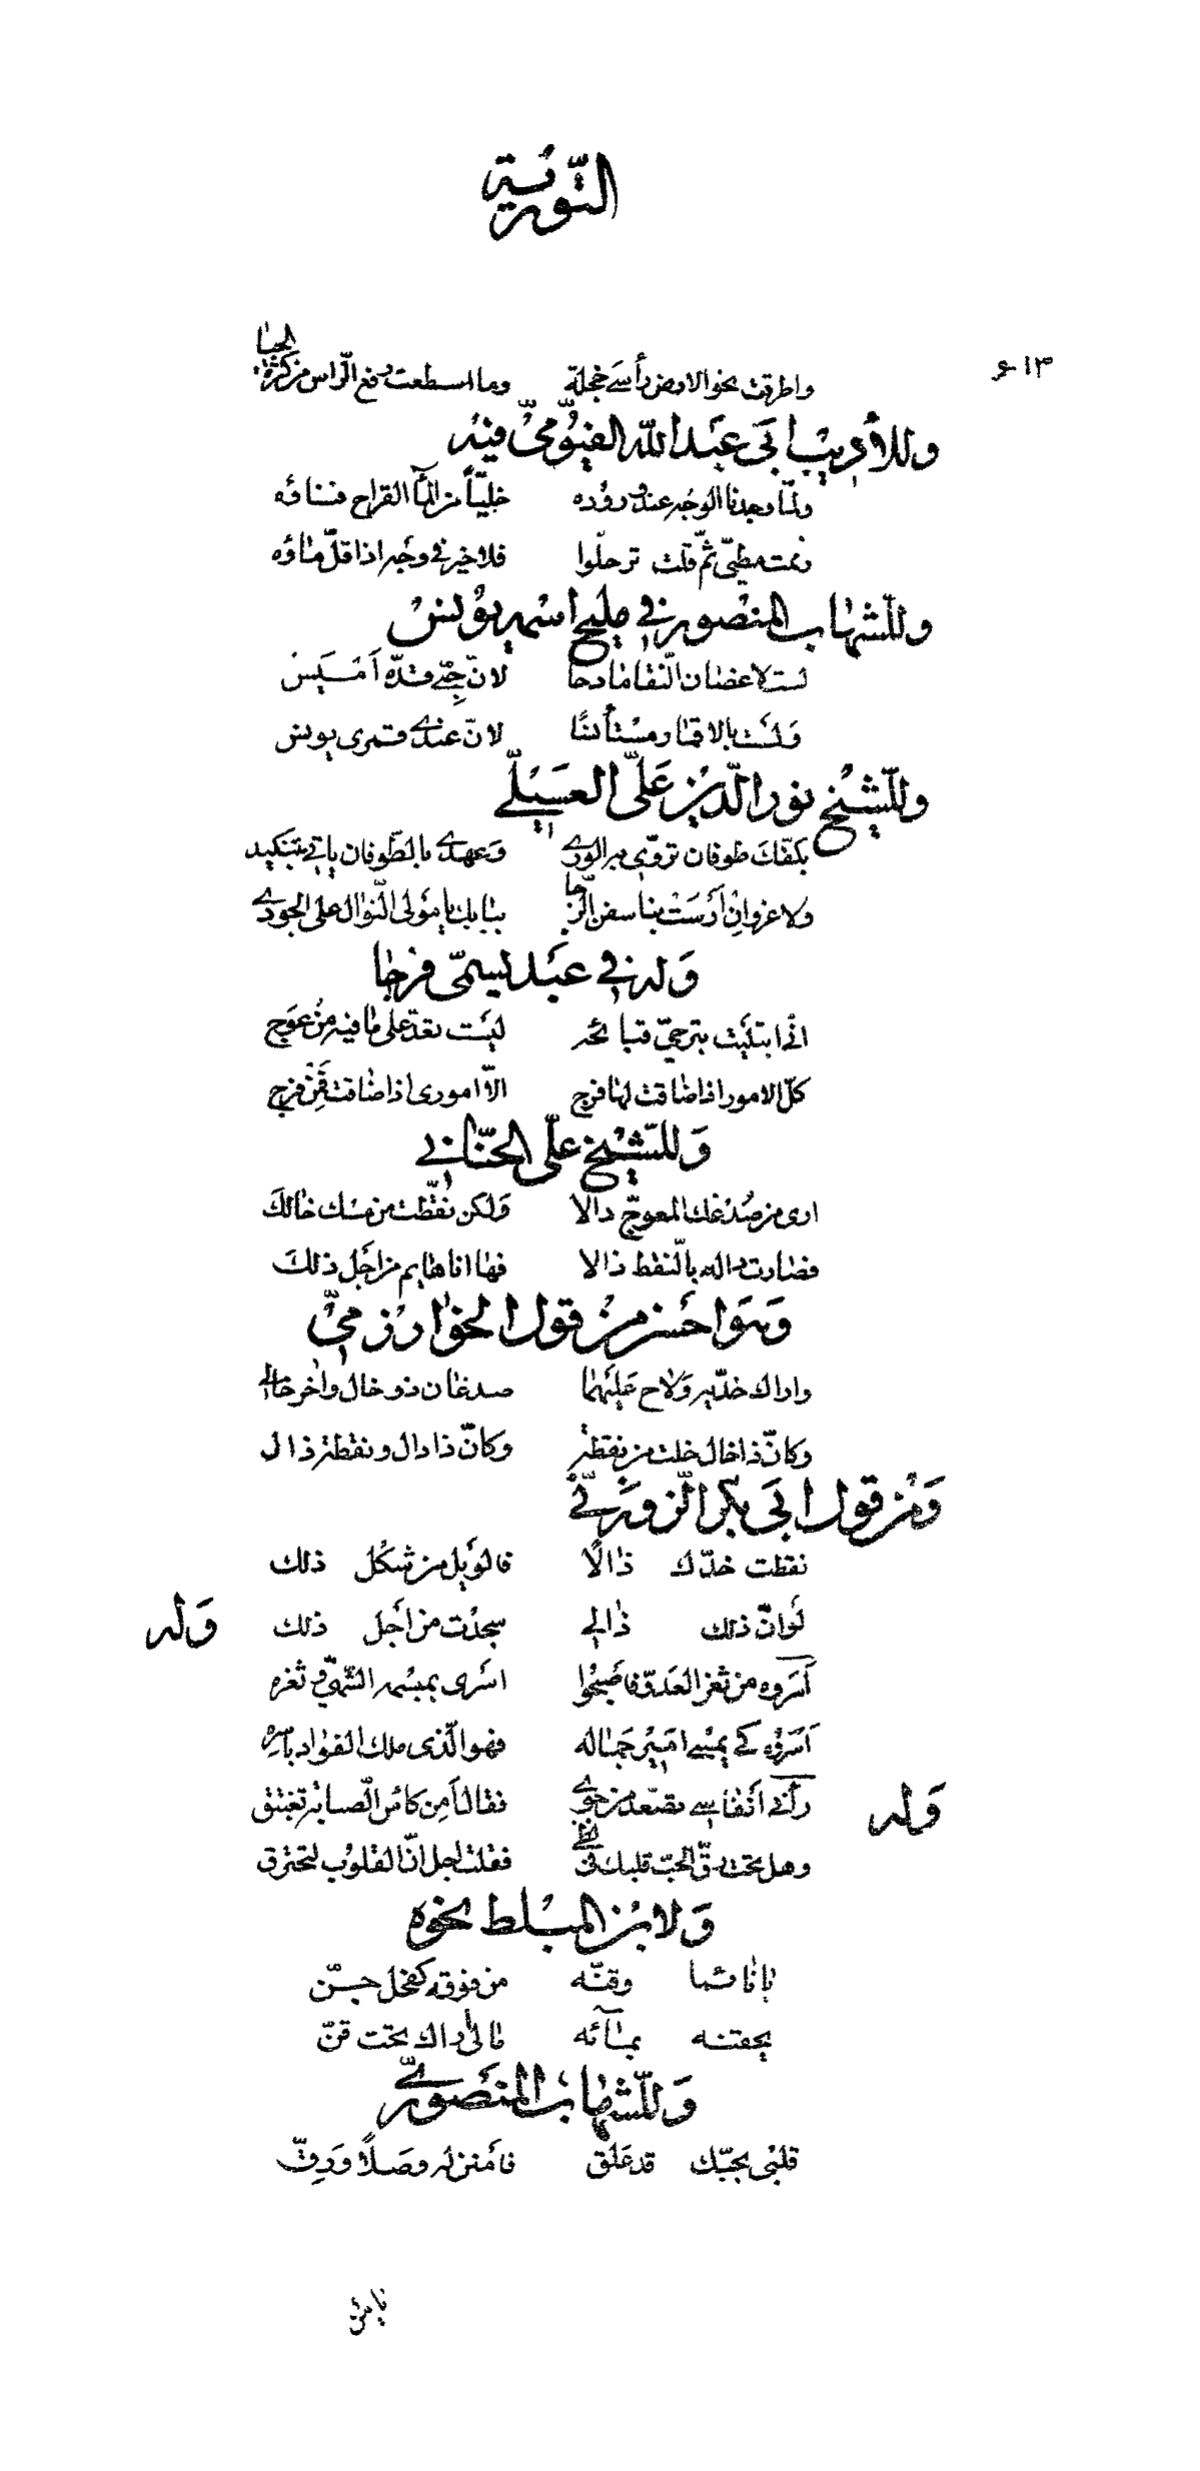 النّورية
١٣ و
واطرقت نحو الارض رأسي خجلة وما اسطعت رفع الرّاس من كثرة الحيا
وللأديب ابي عبد الله الفيّومي فيه
ولمّا وجدنا الوجه عند وروده خليّاً من المآ القراح فناؤه
مطيّ ثمّ قلت ترحّلوا فلا خير في وجه اذا قلّ ماؤه
وللشّهاب المنصور في مليح اسمه يونس
لست لاغصان النّقا مادحا لانّ حِبّي قدّه اميس
ولست بالاقمار مستأنسًا لانّ عندي قمري يونس
وللشّيخ نور الدّين عليّ العسيلي
بكفّك طوفان تروّي به الورى وعهدي بالطّوفان ياتي بتنكيد
ولا غرو اِن اَرست بنا سفن الرّجا ببابك يا مولى النّوال على الجودي
وله في عبد يسمّى فرجا
انّي ابتليت بترجيّ قبائحه ليست تعدّ على ما فيه من عوج
كلّ الامور اذا ضاقت لها فرج الاّ اموري اذا ضاقت فمن فرج
وللشّيخ عليّ الحنّاني
ارى من صُدغك المعوجّ دالا ولكن نُقّطت من مسك خالك
فصارت داله بالنّقط ذالا فها انا هايم من اجل ذلك
وهو احسن من قول الخوارزميّ
واراك خدّيه ولاح عليهما صدغان ذو خال واٰخر خالي
وكانّ ذا خال خلت من نقطة وكانّ ذا دال ونقطة ذال
ومن قول ابي بكر الزّوزنيّ
نقطت خدّك ذالاً فالويل من شكل ذلك
لو انّ ذلك ذا لي سجدت من اجل ذلك
وله
اَسروه من ثغر العدوّ فاصبحوا اسرى بمبسمه الشّهيّ وثغره
اَسروه كي يمسي امير جماله فهو الّذي ملك الفؤاد باسره
وله
رأى انفاسي تصّعد من جوى فقال اَمن كاس الصّبابة تغتبق
وهل تحت رقّ الحبّ قلبك في لظى فقلت اجل انّ القلوب لتحترق
ولابن المبلط نحوه
يا قاشما وقنّه من فوقه كفحل جنّ
بجفتنه بمآئه مالي اراك تحت قنّ
وللشّهاب المنصوريّ
قلبي بحبّك قد علق فامنن له وصلاً ورِقّ